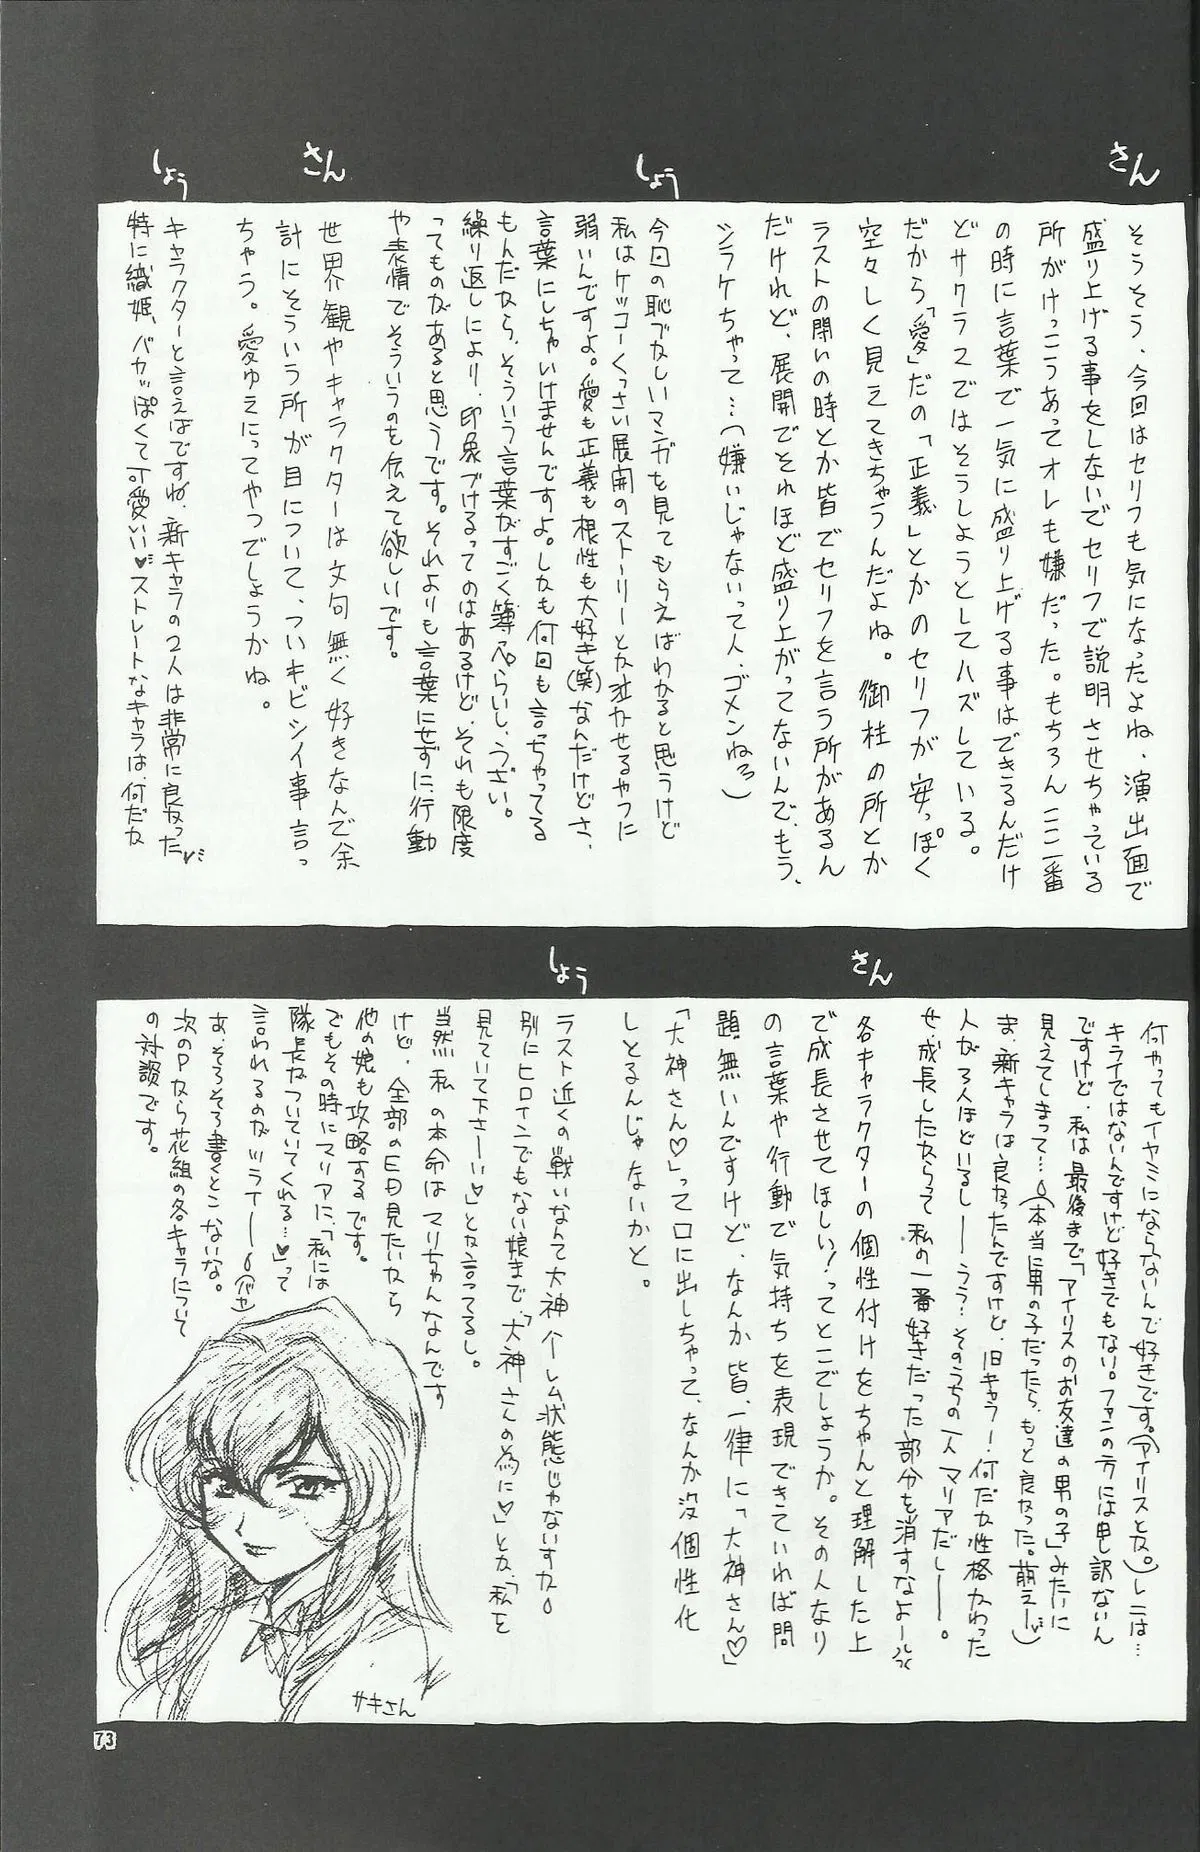 さん
そうそう、今回はセリフも気になったよね、演出面で
盛り上げる事をしないでセリフで説明させちゃっている
所がけっこうあってオレも嫌だった。もちろんここ一番
の時に言葉で一気に盛り上げる事はできるんだけ
どサクラ2ではそうしようとしてハズしている。
だから「愛」だの「正義」とかのセリフが安っぽく
空々しく見えてきちゃうんだよね。御柱の所とか
ラストの闘いの時とか皆でセリフを言う所があるん
だけれど、展開でそれほど盛り上がってないんで、もう、
シラケちゃって…(嫌いじゃないって人、ゴメンねろ)
しょう
今回の恥ずかしいマンガを見てもらえばわかると思うけど
私はケッコーくっさい展開のストーリーとか泣かせるやつに
弱いんですよ。愛も正義も根性も大好き(笑)なんだけどさ、
言葉にしちゃいけませんですよ。しかも何回も言っちゃってる
もんだから、そういう言葉がすごく薄っぺらいし、うざい。
繰り返しにより、印象づけるってのはあるけど、それも限度
ってものがあると思うです。それよりも言葉にせずに、行動
や表情でそういうのを伝えて欲しいです。
さん
世界観やキャラクターは文句無く好きなんで余
計にそういう所が目について、ついキビシイ事言っ
ちゃう。愛ゆえにってやつでしょうかね。
しょう
キャラクターと言えばですね、新キャラの2人は非常に良かった
特に織姫、バカっぽくて可愛い♥ストレートなキャラは、何だか
何やってもイヤミにならないんで好きです。(アイリスとか。)レニは…
キライではないんですけど好きでもない。ファンの方には申訳ないん
ですけど、私は最後まで「アイリスのお友達の男の子」みたいに
見えてしまって…(本当に男の子だったら、もっと良かった。萌えー)
ま、新キャラは良かったんですけど、旧キャラー・何だか性格かわった
人が3人ほどいるしーーうう…そのうちの一人マリアだしーー。
せ、成長したからって私の一番好きだった部分を消すなよーっ
さん
各キャラクターの個性付けをちゃんと理解した上
で成長させてほしい!ってとこでしょうか。その人なり
の言葉や行動で気持ちを表現できていれば問
題無いんですけど、なんか皆、一律に「大神さん♡」
「大神さん♡」って口に出しちゃって、なんか没個性化
しとるんじゃないかと。
しょう
ラスト近くの戦いなんて大神ハーレム状態じゃないすか
別にヒロインでもない娘まで、「大神さんの為に♡」とか、「私を
見ていて下さーい♡」とか言ってるし。
当然私の本命はマリちゃんなんです
けど、全部のED見たいから
他の娘も攻略するです。
でもその時にマリアに、「私には
隊長がついていてくれる…♥」って
言われるのがツライーー(バカ)
あ、そろそろ書くとこないな。
次のPから花組の各キャラについて
の対談です。
サキさん
73